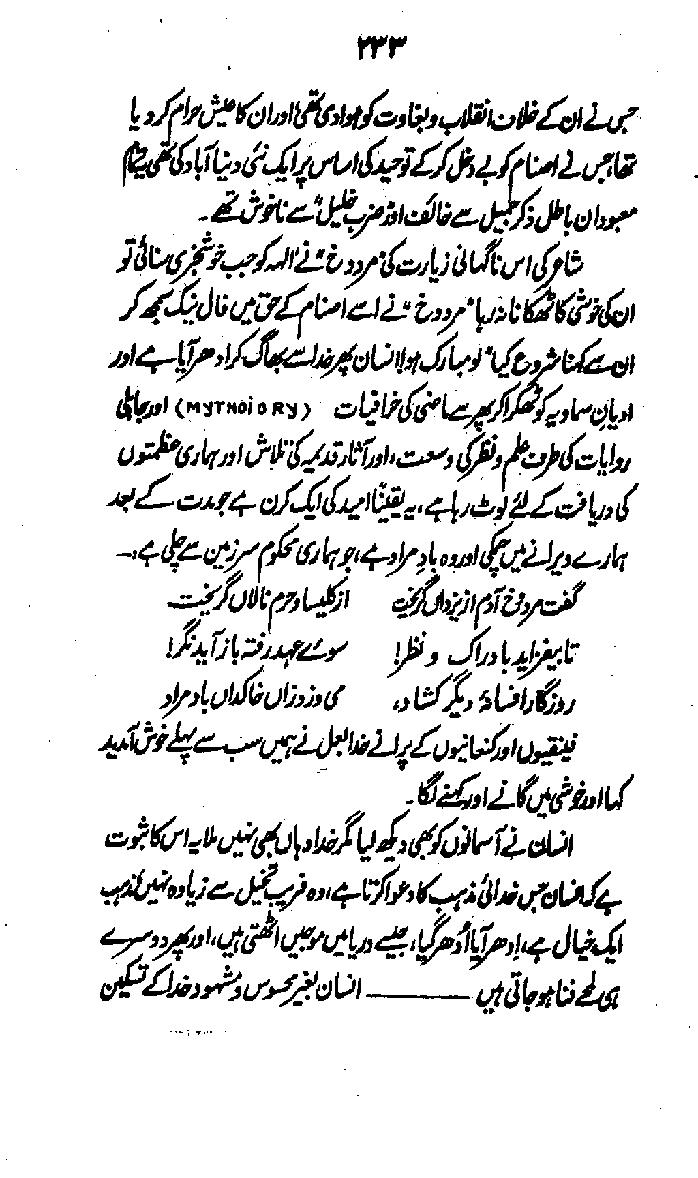 ۲۳۳
جس نے ان کے خلاف انقلاب و بغاوت کو ہوا دی تھی اور ان کا عیش حرام کر دیا
تھا، جس نے اصنام کو بے دخل کر کے توحید کی اساس پر ایک نئی دنیا آباد کی تھی یہ تمام
معبودان باطل ذکر جمیل سے خائف اور ضرب خلیلؑ سے ناخوش تھے۔
شاعر کی اس ناگہانی زیارت کی "مردوخ" نے الہہ کو جب خوشخبری سنائی تو
ان کی خوشی کا ٹھکانا نہ رہا "مردوخ" نے اسے اصنام کے حق میں فال نیک سمجھ کر
ان سے کہنا شروع کیا "لو مبارک ہو! انسان پھر خدا سے بھاگ کر ادھر آیا ہے اور
ادیانِ سماویہ کو ٹھکرا کر پھر سے ماضی کی خرافیات (MYTHOIORY) اور جاہلی
روایات کی طرف علم و نظر کی وسعت، اور آثار قدیمہ کی تلاش اور ہماری عظمتوں
کی دریافت کے لئے لوٹ رہا ہے، یہ یقیناً امید کی ایک کرن ہے جو مدت کے بعد
ہمارے ویرانے میں چمکی اور وہ بادِ مراد ہے، جو ہماری محکوم سرزمین سے چلی ہے،۔
گفت مردوخ آدم از یزداں گریخت از کلیسا و حرم نالاں گریخت
تا بیفزاید بادراک و نظر! سوئے عہد رفتہ باز آید نگر!
روزگار افسانۂ دیگر کشاد، می وزد زاں خاکداں باد مراد
فینقیوں اور کنعانیوں کے پرانے خدا لبعل نے ہمیں سب سے پہلے خوش آمدید
کہا اور خوشی میں گانے اور کہنے لگا۔
انسان نے آسمانوں کو بھی دیکھ لیا مگر خدا وہاں بھی نہیں ملا یہ اس کا ثبوت
ہے کہ انسان جس خدائی مذہب کا دعوا کرتا ہے، وہ فریب تخیل سے زیادہ نہیں مذہب
ایک خیال ہے، اِدھر آیا اُدھر گیا، جیسے دریا میں موجیں اٹھتی ہیں، اور پھر دوسرے
ہی لمحے فنا ہو جاتی ہیں ——— انسان بغیر محسوس و مشہود خدا کے تسکین